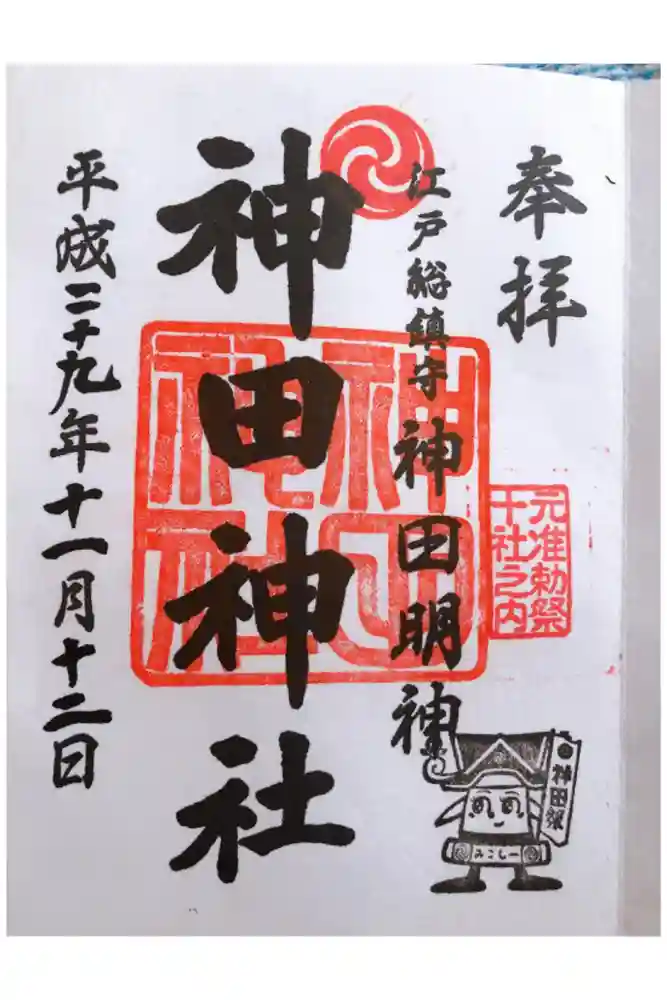 奉拝
元准勅祭
十社之内
江戸総鎮守 神田明神
神田神社
神田
神社
平成二十九年十一月十二日
神田祭
みこしー